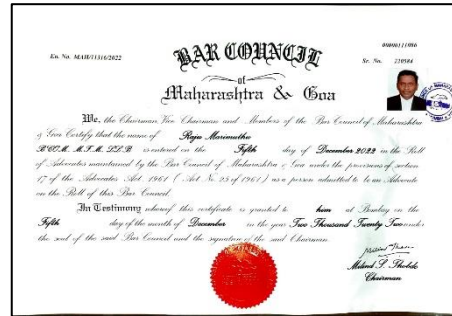 En. No. MAH/11316/2022
BAR COUNCIL
Sr. No. 220584
of
Maharashtra & Goa
We, the Chairman, Vice Chairman and Members of the Bar Council of Maharashtra
& Goa Certify that the name of Raju Marimuthu
is entered on the Fifth day of December 2022 in the Roll
of Advocates maintained by the Bar Council of Maharashtra & Goa under the provisions of section
17 of the Advocates Act 1961 (Act No 25 of 1961) as a person admitted to be an Advocate
on the Roll of this Bar Council.
In Testimony whereof this certificate is granted to him at Bombay on the
Fifth day of the month of December in the year Two Thousand Twenty Two under
the seal of the said Bar Council and the signature of the said Chairman.
Chairman